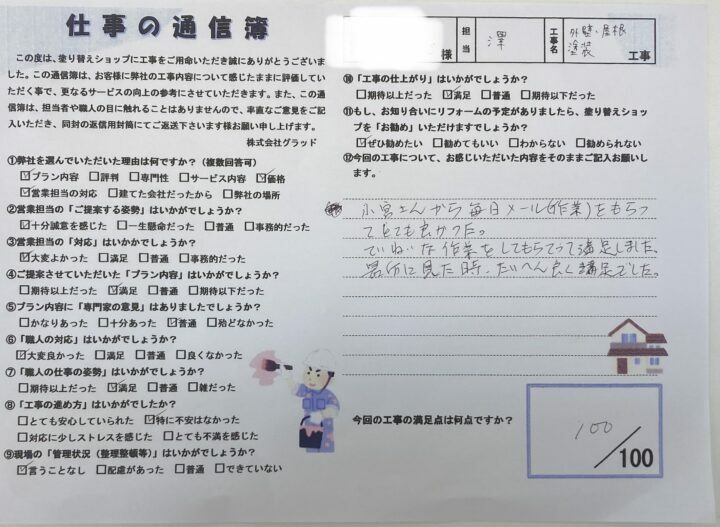 仕事の通信簿
この度は、塗り替えショップに工事をご用命いただき誠にありがとうございま
した。この通信簿は、お客様に弊社の工事内容について感じたままに評価してい
ただく事で、更なるサービスの向上の参考にさせていただきます。また、この通
信簿は、担当者や職人の目に触れることはありませんので、率直なご意見をご記
入いただき、同封の返信用封筒にてご返送下さいます様お願い申し上げます。
株式会社グラッド
①弊社を選んでいただいた理由は何ですか？（複数回答可）
☑プラン内容 □評判 □専門性 □サービス内容 ☑価格
☑営業担当の対応 □建てた会社だったから □弊社の場所
②営業担当の「ご提案する姿勢」はいかがでしょうか？
☑十分誠意を感じた □一生懸命だった □普通 □事務的だった
③営業担当の「対応」はいかかでしょうか？
☑大変よかった □満足 □普通 □事務的だった
④ご提案させていただいた「プラン内容」はいかがでしょうか？
□期待以上だった ☑満足 □普通 □期待以下だった
⑤プラン内容に「専門家の意見」はありましたでしょうか？
□かなりあった □十分あった ☑普通 □殆どなかった
⑥「職人の対応」はいかがでしょうか？
☑大変良かった □満足 □普通 □良くなかった
⑦「職人の仕事の姿勢」はいかがでしょうか？
□期待以上だった ☑満足 □普通 □雑だった
⑧「工事の進め方」はいかがでしたか？
□とても安心していられた ☑特に不安はなかった
□対応に少しストレスを感じた □とても不満を感じた
⑨現場の「管理状況（整理整頓等）」はいかがでしょうか？
☑言うことなし □配慮があった □普通 □できていない
様 担当 澤 工事名 外壁・屋根 塗装 工事
⑩「工事の仕上がり」はいかがでしょうか？
□期待以上だった ☑満足 □普通 □期待以下だった
⑪もし、お知り合いにリフォームの予定がありましたら、塗り替えショッ
プを「お勧め」いただけますでしょうか？
☑ぜひ勧めたい □勧めてもいい □わからない □勧められない
⑫今回の工事について、お感じいただいた内容をそのままご記入お願いし
ます。
小宮さんから毎日メール(作業)をもらっ
てとても良かった。
ていねいな作業をしてもらって満足しました。
に見た時、たいへん良く満足でした。
今回の工事の満足点は何点ですか？
100
/100